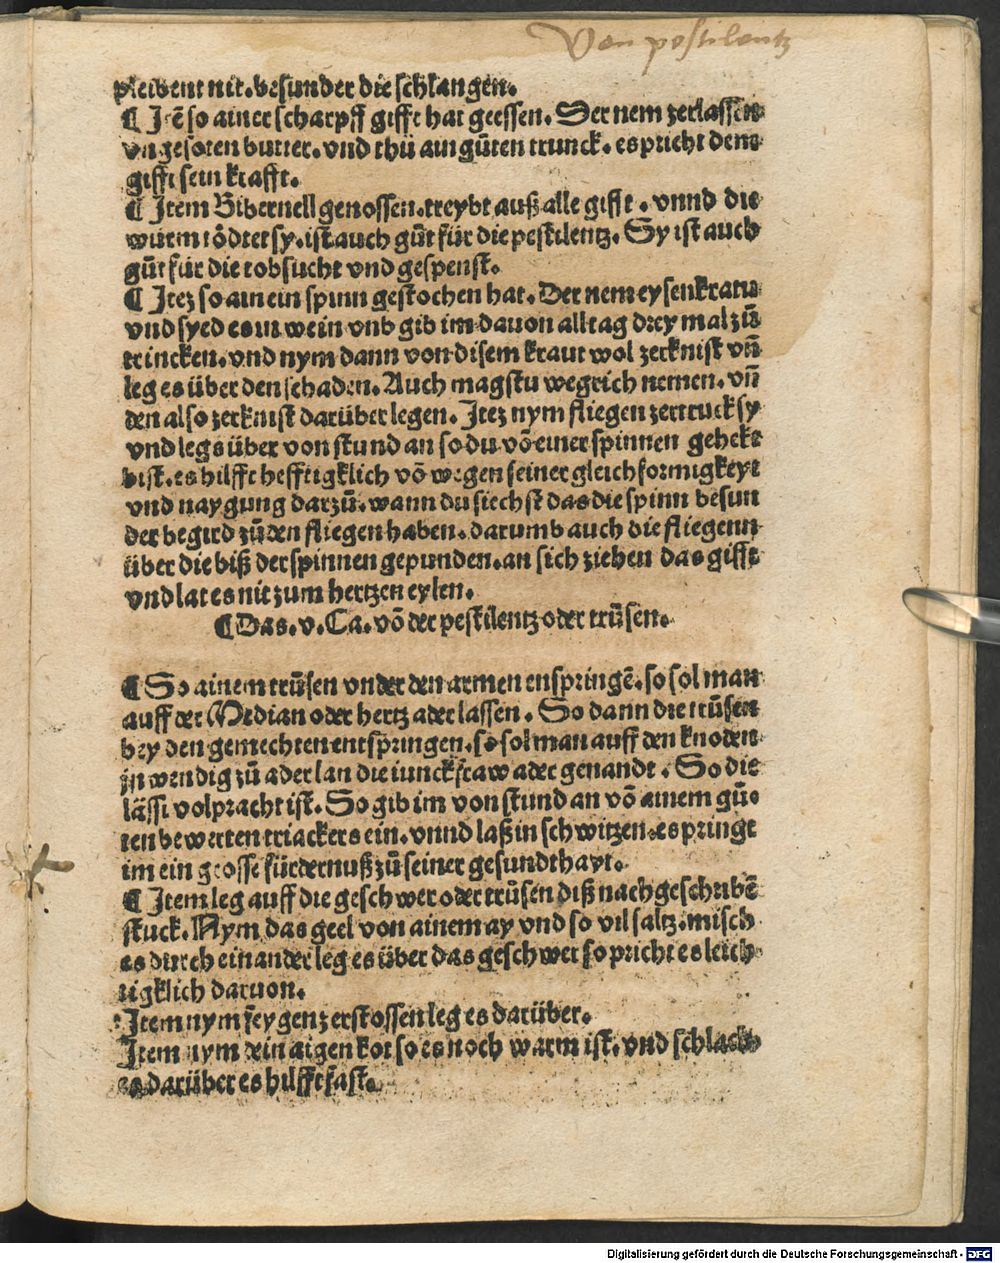 Von pestilentz
pleibent nit. besunder die schlangen.
¶ Itē so ainer scharpff gifft hat geessen. Der nem zerlassen
vngesoten butter. vnd thů ain gůten trunck. es pricht dem
gifft sein krafft.
¶ Item Bibernell genossen. treybt auß alle gifft. vnnd die
würm tödtet sy. ist auch gůt für die pestilentz. Sy ist auch
gůt für die tobsucht vnd gespenst.
¶ Itez so ain ein spinn gestochen hat. Der nem eysenkraut
vnd syed es in wein vnb gib im dauon all tag drey mal zů
trincken. vnd nym dann von disem kraut wol zerknist vñ
leg es über den schaden. Auch magstu wegrich nemen. vñ
den also zerknist darüber legen. Itez nym fliegen zertruck sy
vnd legs über von stund an so du vō einer spinnen geheckt
bist. es hilfft hefftigklich vō wegen seiner gleichformigkeyt
vnd naygung darzů. wann du siechst das die spinn besun
der begird zů den fliegen haben. darumb auch die fliegenn
über die biß der spinnen gepunden. an sich ziehen das gifft
vnd lat es nit zum hertzen eylen.
¶ Das. v. Ca. vō der pestilentz oder trůsen.
¶ So ainem trůsen vnder den armen enspringē. so sol man
auff der Median oder hertz ader lassen. So dann die trůsen
bey den gemechten entspringen. so sol man auff den knoden
inwendig zů ader lan die iunckfraw ader genandt. So die
lässi volpracht ist. So gib im von stund an vō ainem gů-
ten bewerten triackers ein. vnnd laß in schwitzen. es pringt
im ein grosse fürdernuß zů seiner gesundthayt.
¶ Item leg auff die geschwer oder trůsen diß nachgeschribē
stuck. Nym das geel von ainem ay vnd so vil saltz. misch
es durch einander leg es über das geschwer so pricht es leich
tigklich daruon.
Item nym feygen zerstossen leg es darüber.
Item nym dein aigen kot so es noch warm ist. vnd schlach
es darüber es hilfft fast.
Digitalisierung gefördert durch die Deutsche Forschungsgemeinschaft - DFG